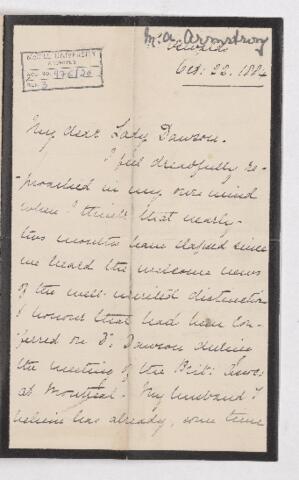 M. A. Armstrong
McGILL UNIVERSITY
ARCHIVES
ACC. NO. 976/20
REF. 3
Oct: 22. 1884
My dear Lady Dawson.
I feel dreadfully re-
proached in my own mind
when I think that nearly
two months have elapsed since
we heard the welcome news
of the well-merited distinction
& honour that had been con-
ferred on Dr. Dawson during
the meeting of the Brit: Assoc:
at Montreal. My husband I
believe has already, some time